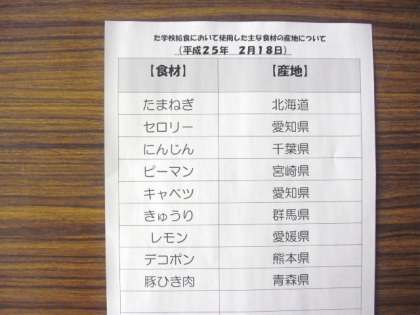 た学校給食において使用した主な食材の産地について
（平成２５年　２月１８日）
【食材】 【産地】
たまねぎ 北海道
セロリー 愛知県
にんじん 千葉県
ピーマン 宮崎県
キャベツ 愛知県
きゅうり 群馬県
レモン 愛媛県
デコポン 熊本県
豚ひき肉 青森県